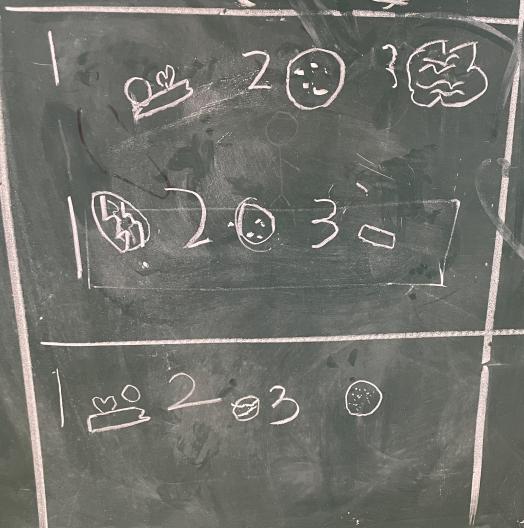 1 2 3
1 2 3
1 2 3